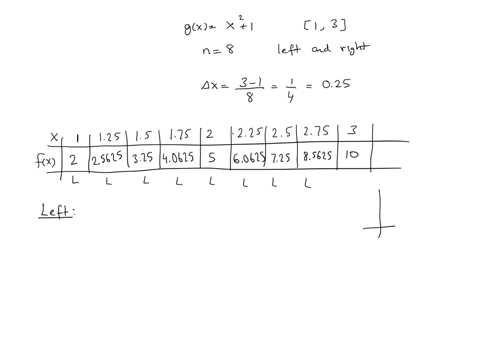 g(x) = x²+1 [1, 3]
n = 8 left and right
Δx = 3-1/8 = 1/4 = 0.25
x | 1 | 1.25 | 1.5 | 1.75 | 2 | 2.25 | 2.5 | 2.75 | 3
f(x) | 2 | 2.5625 | 3.25 | 4.0625 | 5 | 6.0625 | 7.25 | 8.5625 | 10
L L L L L L L L
Left: